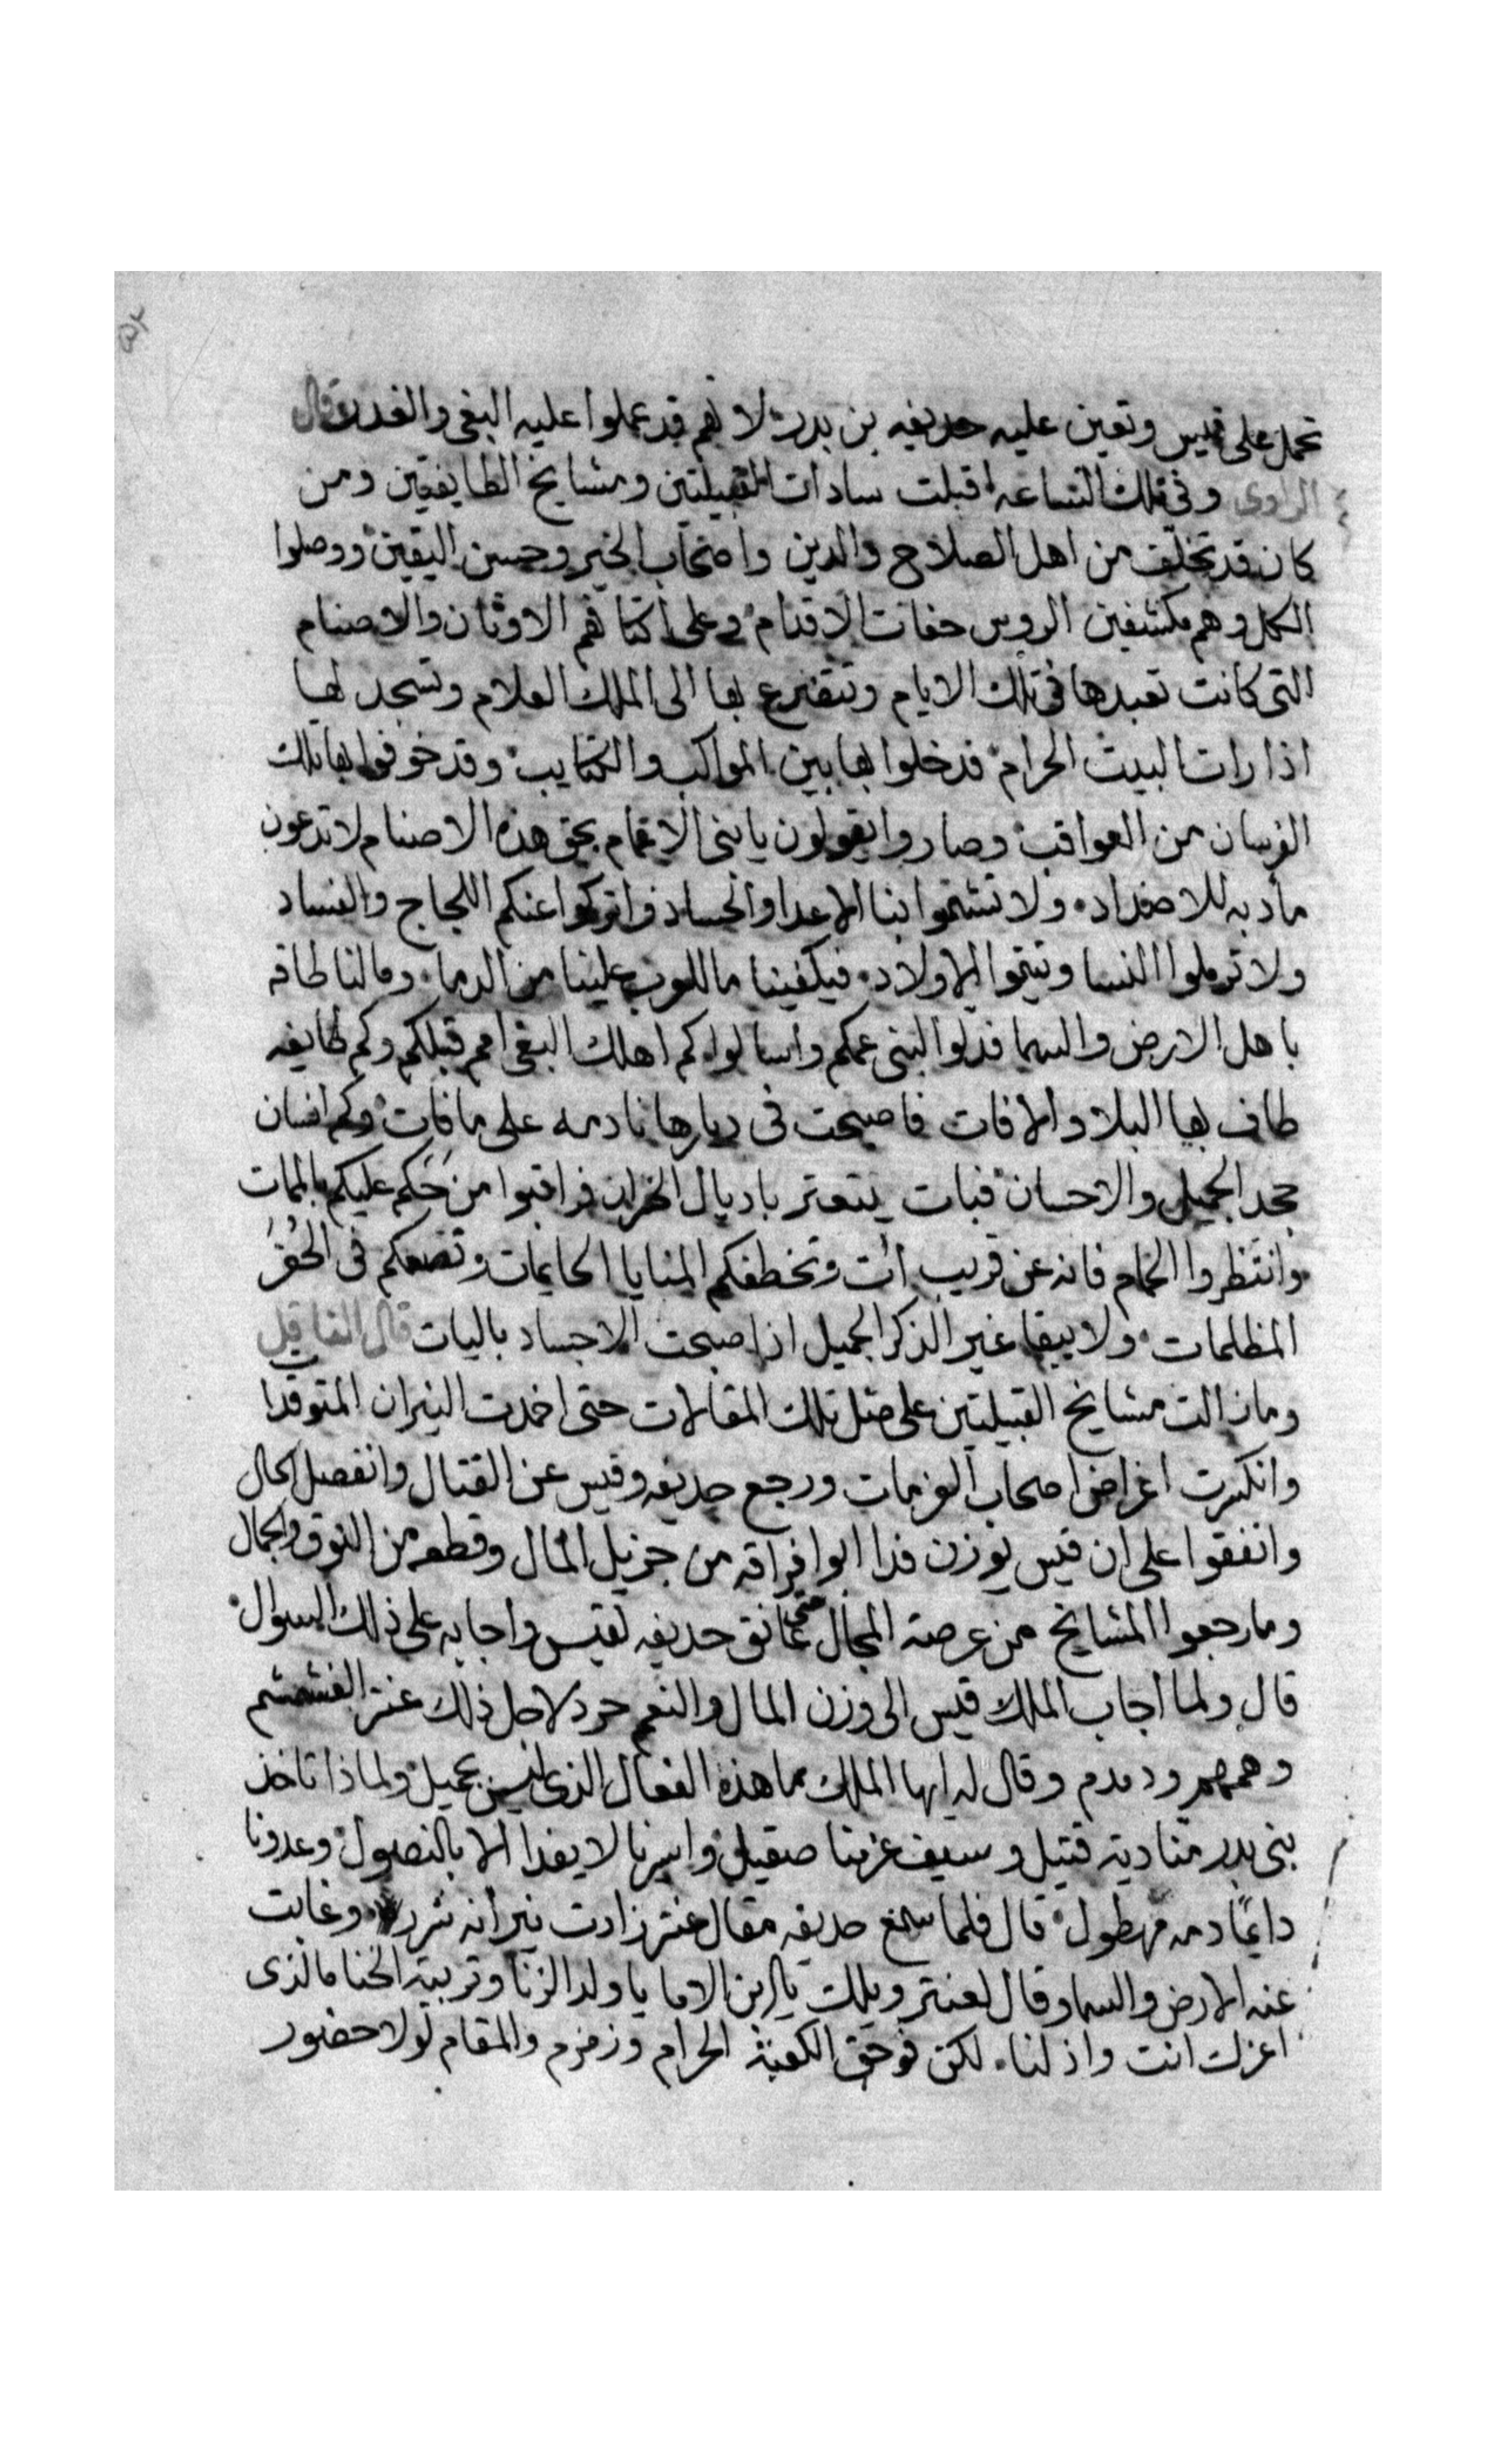 تحمل على قيس وتعين عليه حديفه بن بدر لانهم قد عملوا عليه البغى والغدر قال
الراوى وفى تلك الساعه اقبلت سادات القبيلتين ومشايخ الطايفتين ومن
كان قد تخلف من اهل الصلاح والدين واصحاب الخير وحسن اليقين ووصلوا
الكل وهم مكشفين الروس حفات الاقدام وعلى اكتافهم الاوثان والاصنام
التى كانت تعبدها فى تلك الايام وتتضرع بها الى الملك العلام وتسجد لها
اذا رات البيت الحرام فدخلوا بها بين المواكب والكتايب وقد خوفوا بها تلك
الفرسان من العواقب وصاروا يقولون يا بنى الاعمام بحق هذه الاصنام لا تدعون
مادبه للاضداد ولا تشمتوا بنا الاعدا والحساد واتركوا عنكم اللجاج والفساد
ولا ترملوا النسا وتيتموا الاولاد فيكفينا ما للعرب علينا من الدما وما لنا طاقه
باهل الارض والسما فدلوا لبنى عمكم واسالوا كم اهلك البغى امم قبلكم وكم طايفه
طاف بها البلا والافات فاصبحت فى ديارها نادمه على ما فات وكم انسان
جحد الجميل والاحسان فبات يتعتر باديال الخزان فراقبوا من حَكَم عليكم بالممات
وانتظروا الحمام فانه عن قريب ات وتخطفكم المنايا الحايمات وتضعكم فى الحُفَرْ
المظلمات ولا يبقا غير الذكر الجميل اذا صبحت الاجساد باليات قال الناقل
وما زالت مشايخ القبيلتين على مثل تلك المقالات حتى اخمدت النيران المتوقدا
وانكسرت اغراض اصحاب العزمات ورجع حديفه وقيس عن القتال وانفصل الحال
واتفقوا على ان قيس يوزن فدا ابوا فراقه من جزيل المال وقطعه من النوق والجمال
وما رجعوا المشايخ من عرصة المجال حتى عانق حديفه لقيس واجابه على ذلك السوال
قال ولما اجاب الملك قيس الى وزن المال والنعم حرد لاجل ذلك عنتر الغشمشم
وهمهم ودمدم وقال له ايها الملك ما هذه الفعال الذى ليس بجميل ولماذا تاخذ
بنى بدر منا دية قتيل وسيف عزمنا صقيل واسيرنا لا يفدا الا بالنصول وعدونا
دايمًا دمه مهطول قال فلما سمع حديفه مقال عنتر زادت نيرانه شرر وغابت
عنه الارض والسما وقال لعنتر ويلك يا ابن الاما يا ولد الزنا وتربية الخنا ما الذى
اعزك انت واذلنا لكن فوحق الكعبة الحرام وزمزم والمقام لولا حضور